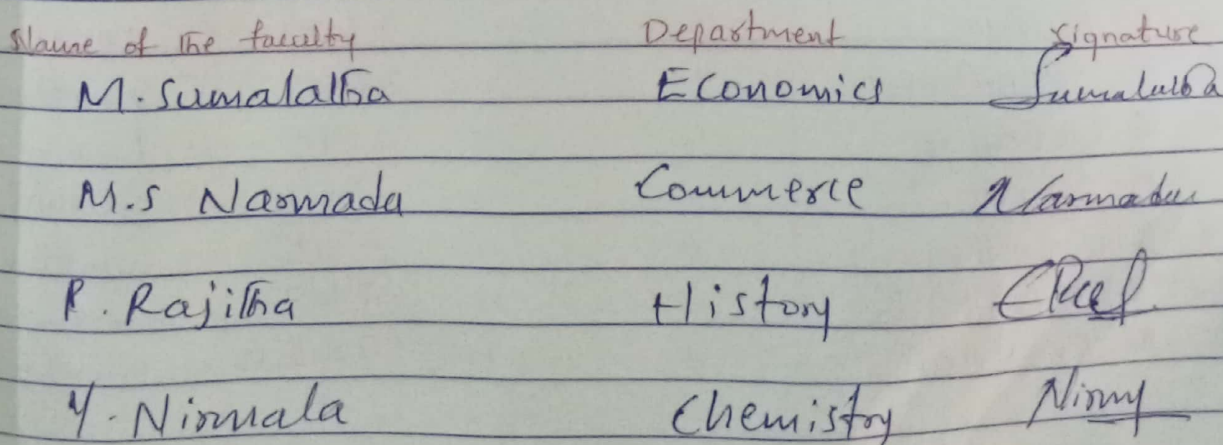 Name of the faculty Department Signature
M. Sumalatha Economics Sumalatha
M.S Narmada Commerce Narmada
P. Rajitha History
Y. Nirmala Chemistry Nirmy